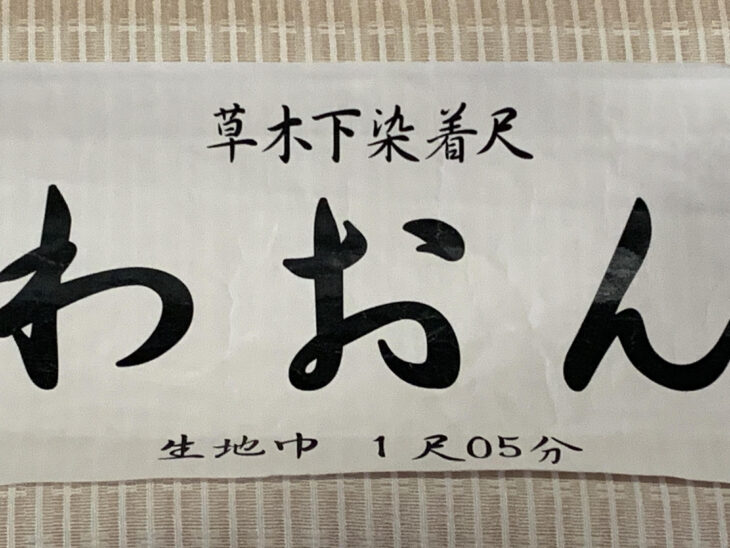 草木下染着尺
わおん
生地巾 1尺05分